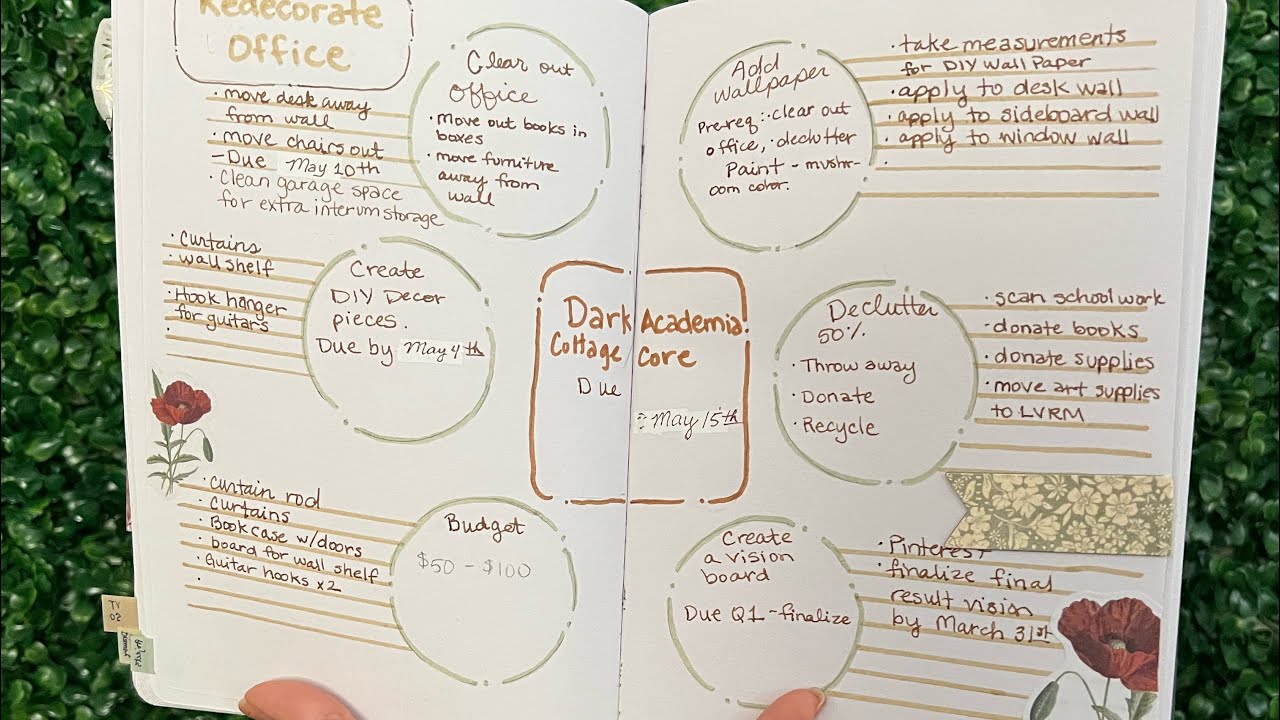 Redecorate
Office
• move desk away
from wall
• move chairs out
- Due May 10th
• Clean garage space
for extra interum storage
Clear out
Office
• move out books in
boxes
• move furniture
away from
wall
• Curtains
• wall shelf
• Hook hanger
for guitars
•
Create
DIY Decor
pieces.
Due by May 4th
• curtain rod
• Curtains
• Bookcase w/doors
• board for wall shelf
• Guitar hooks x2
•
Budget
$50 - $100
TV
02
Dark Academia
Cottage Core
Due
: May 15th
Add
wallpaper
Pre-req: • clear out
office, • declutter
Paint - mushr-
oom color.
• take measurements
for DIY Wall Paper
• apply to desk wall
• apply to sideboard wall
• apply to window wall
•
Declutter
50%
• Throw away
• Donate
• Recycle
• scan school work
• donate books
• donate supplies
• move art supplies
to LVRM
Create
a vision
board
Due Q1 - finalize
• Pinterest
• finalize final
result vision
by March 31st